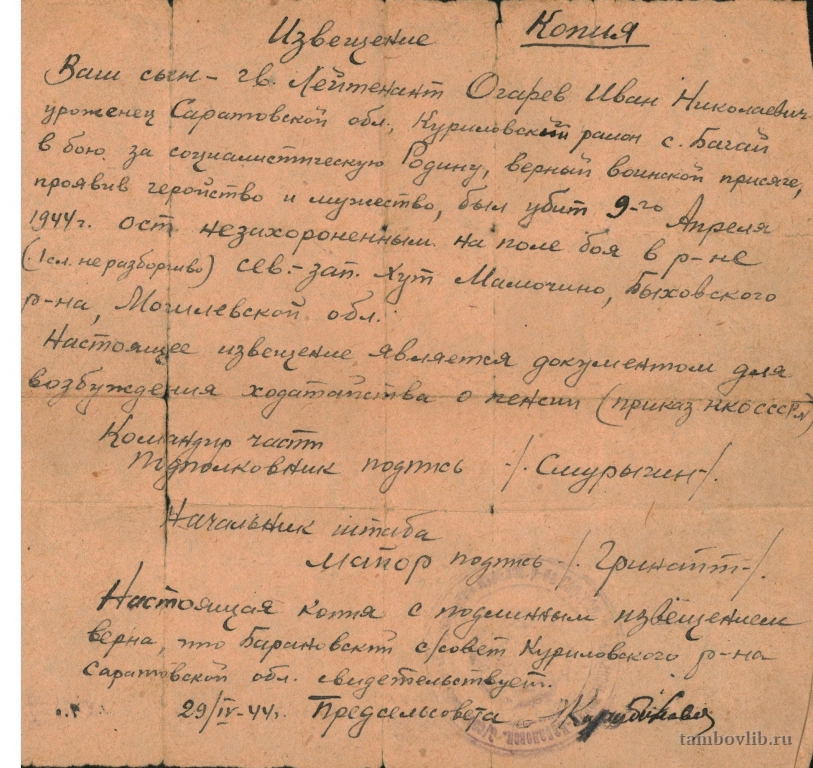 Извещение Копия
Ваш сын – гв. Лейтенант Огарев Иван Николаевич
уроженец Саратовской обл., Куриловский район с. Багай
в бою за социалистическую Родину, верный воинской присяге,
проявив геройство и мужество, был убит 9-го Апреля
1944г. ост. незахороненным на поле боя в р-не
(1сл. не разборчиво) сев.-зап. Хут Мамочино, Быховского
р-на, Могилевской обл.
Настоящее извещение является документом для
возбуждения ходатайства о пенсии (приказ НКО СССР №)
Командир части
подполковник подпись -/. Смурыгин-/.
Начальник штаба
майор подпись -/. Гринатт-/.
Настоящая копия с подлинным извещением
верна, что Барановский с/совет Куриловского р-на
Саратовской обл. свидетельствует.
29/IV-44г. Предсельсовета
tambovlib.ru